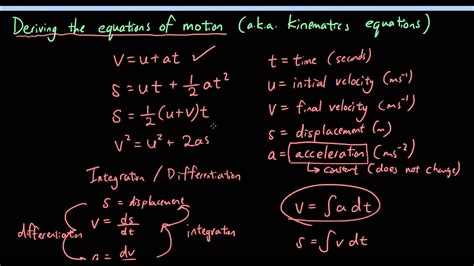 Deriving the equations of motion (a.k.a. kinematics equations)
v = u + at ✓
s = ut + 1/2 at²
s = 1/2 (u+v)t
v² = u² + 2as
t = time (seconds)
u = initial velocity (ms⁻¹)
v = final velocity (ms⁻¹)
s = displacement (m)
a = acceleration (ms⁻²)
↳ constant (does not change)
Integration / Differentiation
s = displacement
v = ds/dt
differentiation
integration
= dv
v = ∫ a dt
s = ∫ v dt